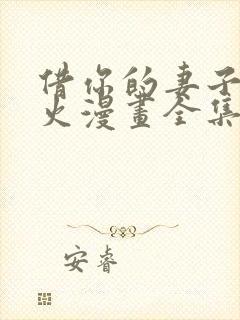 借你的妻子
火漫畫全集
安睿